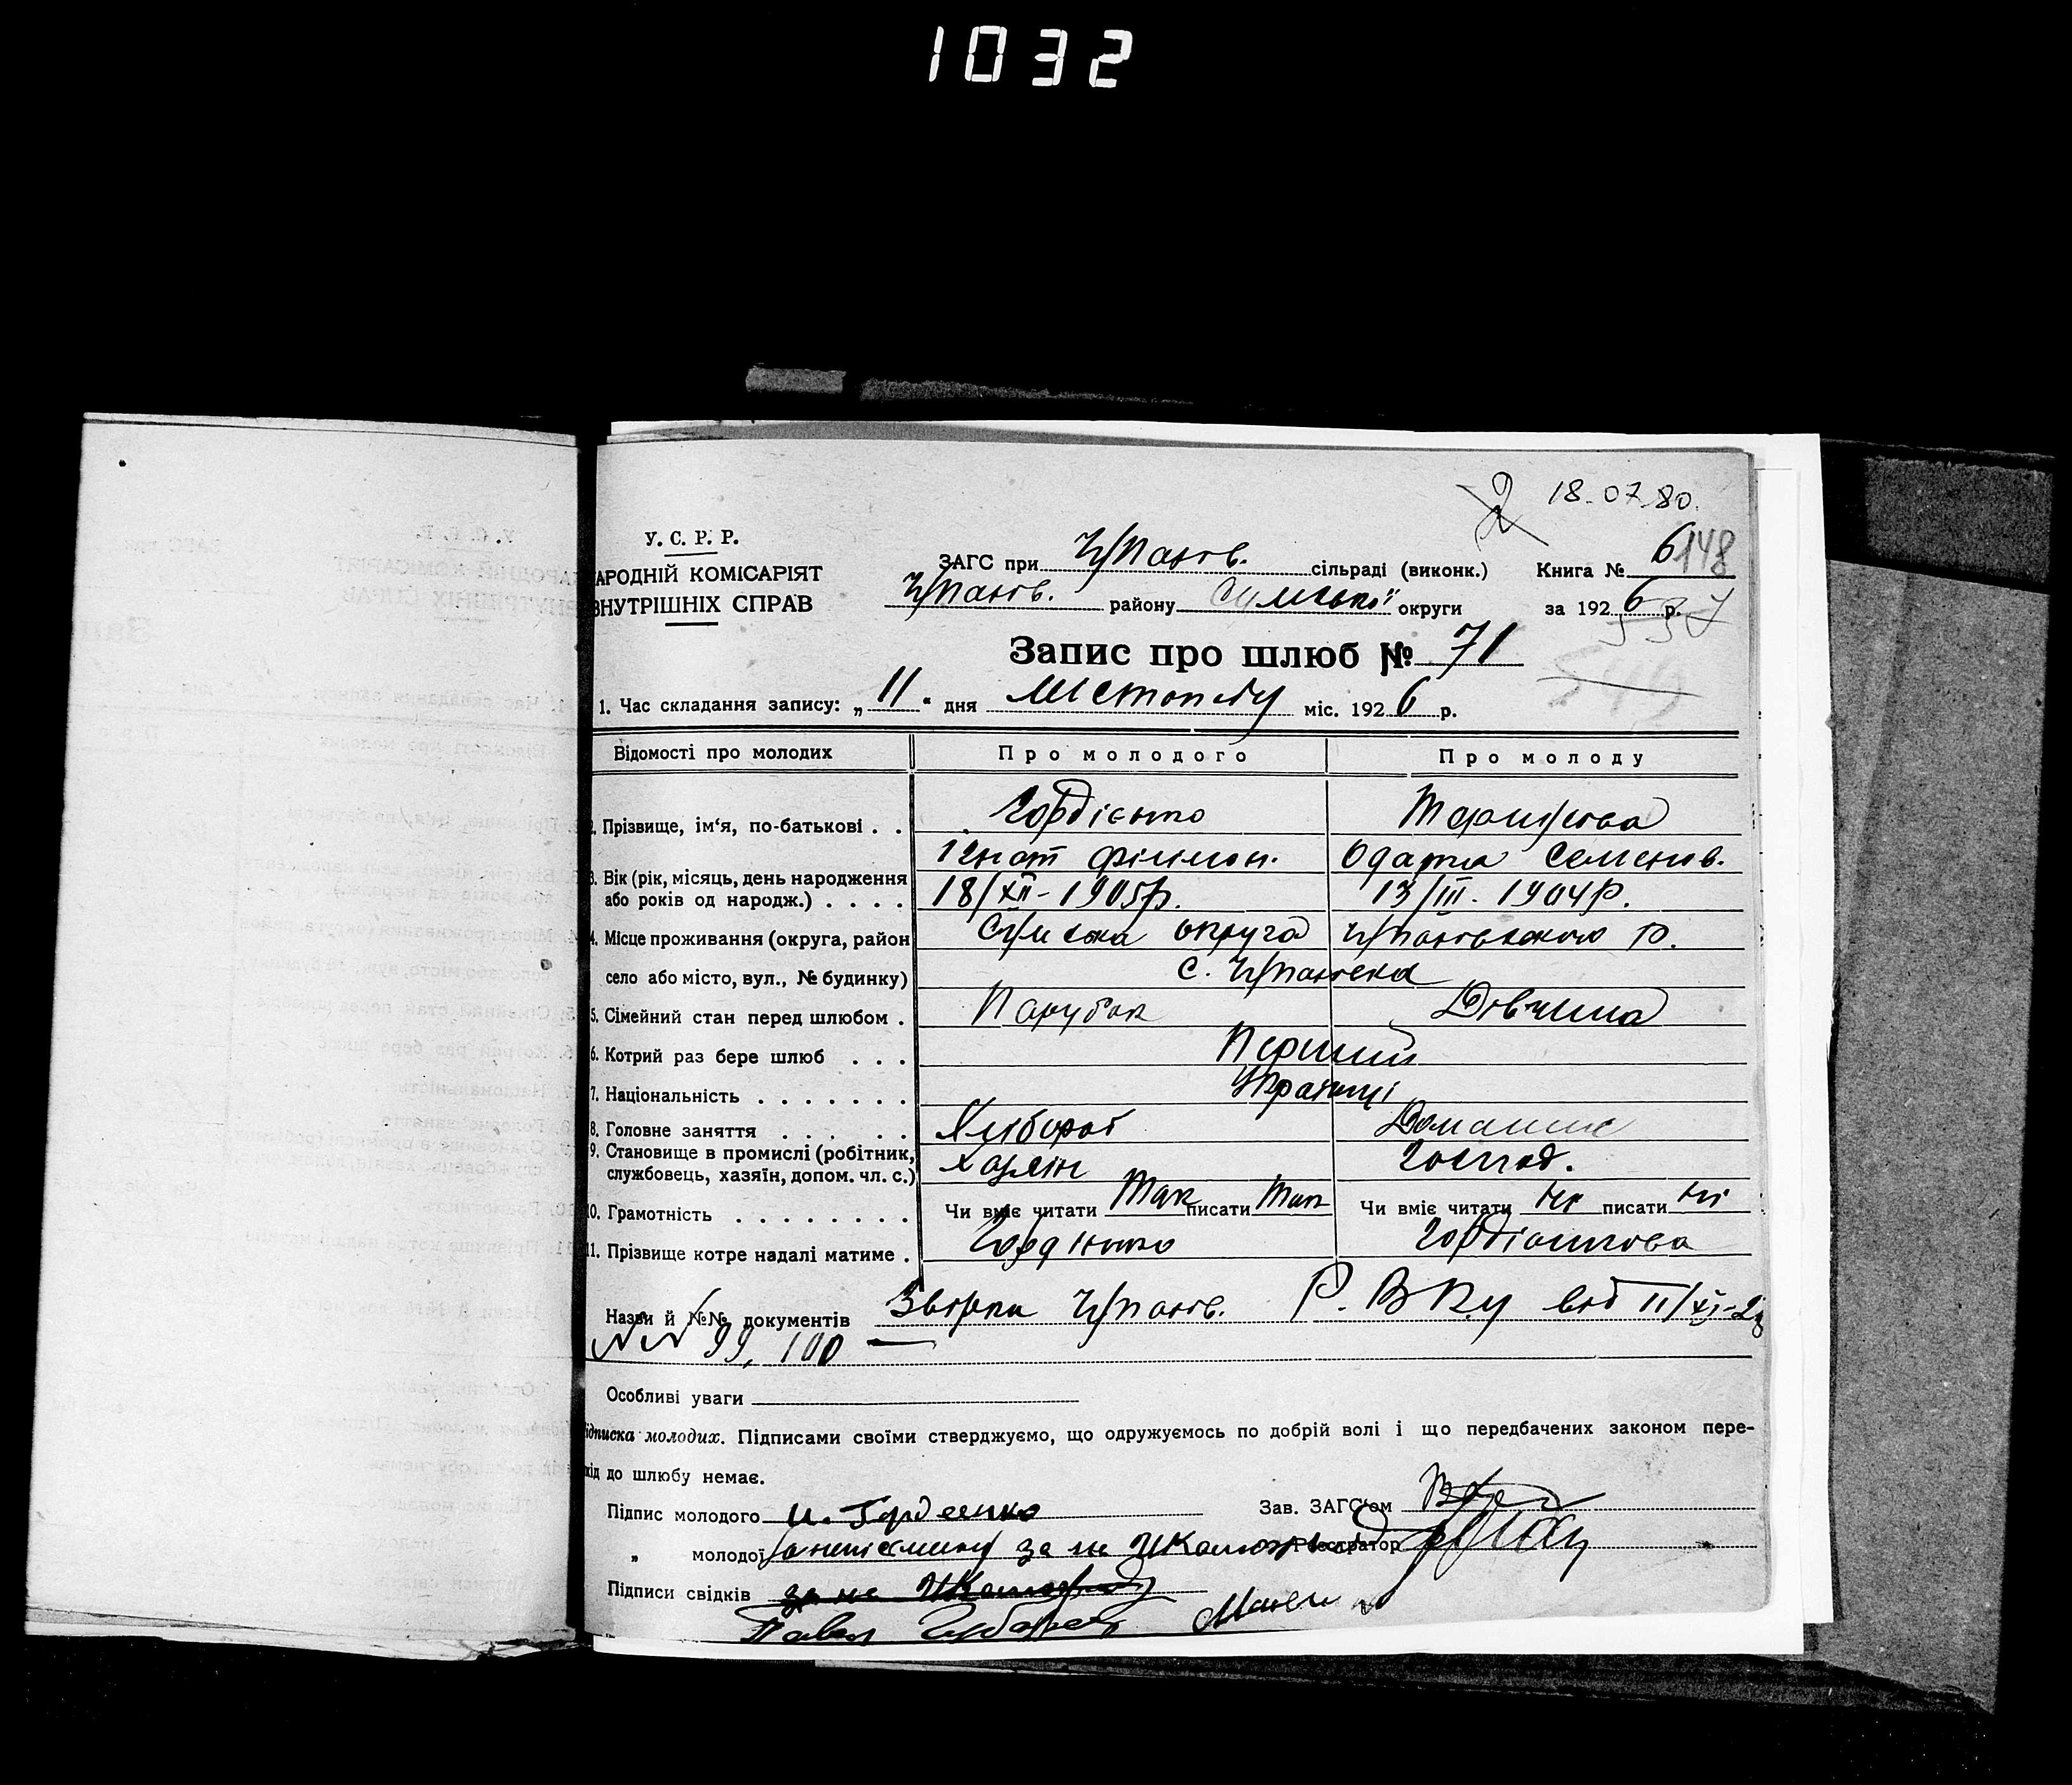 1032
2 18.07.80.
У. С. Р. Р.
АРОДНІЙ КОМІСАРІЯТ
ВНУТРІШНІХ СПРАВ
ЗАГС при Чупахів. сільраді (виконк.) Книга № 6 148
Чупахів. району Сумської округи за 192 6 р. 537
Запис про шлюб № 71
549
1. Час складання запису: „ 11 “ дня Листопаду міс. 192 6 р.
Відомості про молодих Про молодого Про молоду
2. Прізвище, ім‘я, по-батькові . . Гордієнко
Ігнат Филимон. Одарка Семенов.
3. Вік (рік, місяць, день народження або років од народж.) . . . . 18/XII - 1905р. 13/III - 1904р.
4. Місце проживання (округа, район Сумська округа Чупахівського Р.
село або місто, вул., № будинку) с. Чупахівка
5. Сімейний стан перед шлюбом . Парубок Дівчина
6. Котрий раз бере шлюб . . . Перший
7. Національність . . . . . . . Українці
8. Головне заняття . . . . . . Хлібороб Домашнє
9. Становище в промислі (робітник, службовець, хазяїн, допом. чл. с.) хазяїн господ.
10. Грамотність . . . . . . . . Чи вміє читати Так писати Так Чи вміє читати ні писати ні
11. Прізвище котре надалі матиме . Гордієнко Гордіенкова
Назви й №№ документів Звірка Чупахів. Р. В Ку від 11/XI-26
№№ 99, 100 —
Особливі уваги
ідписка молодих. Підписами своїми стверджуємо, що одружуємось по добрій волі і що передбачених законом пере-
кід до шлюбу немає.
Підпис молодого И. Гордеенко Зав. ЗАГС‘ом
„ молодої за не Реєстратор
Підписи свідків за не
Павел